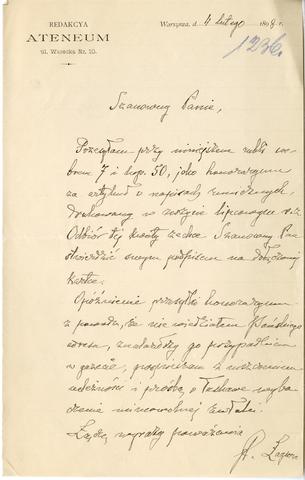 REDAKCYA
ATENEUM
ul. Warecka Nr. 10.
Warszawa, d. 4 Lutego 1898 r.
1236.
Szanowny Panie,
Posyłam przy niniejszem rubli
7 i kop. 50, jako honoraryum
za artykuł o napisach
drukowany w zeszycie lipcowym r. z.
Odbiór tej kwoty zechce Szanowny Pan
stwierdzić swym podpisem na
kartce.
Opóźnienie przesyłki honoraryum
z powodu, że nie wiedziałem Pańskiego
adresu, znalazłszy go przypadkiem
w gazecie, pospieszam z uiszczeniem
należności i prośbą o łaskawe wyba-
czenie mimowolnej zwłoki.
Łączę wyrazy poważania